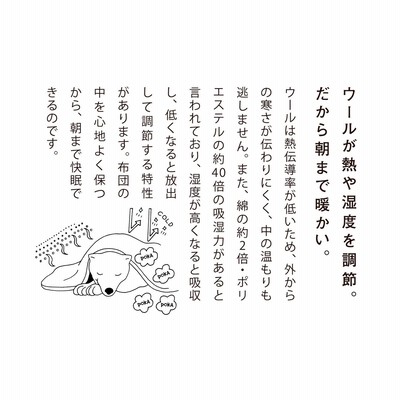 ウールが熱や湿度を調節。
だから朝まで暖かい。
ウールは熱伝導率が低いため、外から
の寒さが伝わりにくく、中の温もりも
逃しません。また、綿の約2倍・ポリ
エステルの約40倍の吸湿力があると
言われており、湿度が高くなると吸収
し、低くなると放出
して調節する特性
があります。布団の
中を心地よく保つ
から、朝まで快眠で
きるのです。
COLD
POKA
POKA
POKA
POKA